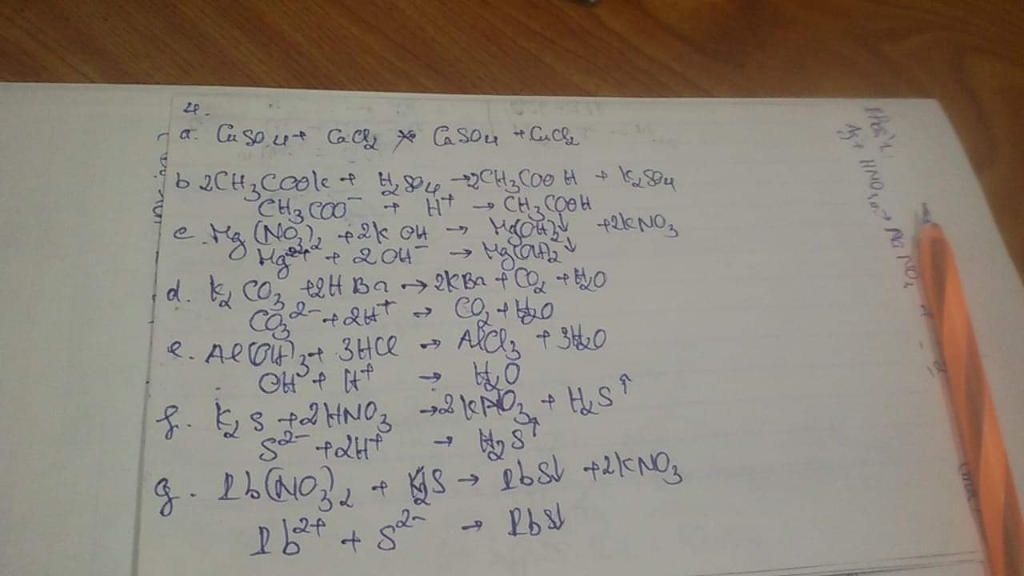 4.
a. CuSO4 + CaCl2 ↛ CaSO4 + CuCl2
b 2CH3COOK + H2SO4 → 2CH3COOH + K2SO4
CH3COO⁻ + H⁺ → CH3COOH
c. Mg(NO3)2 + 2KOH → Mg(OH)2↓ + 2KNO3
Mg²⁺ + 2OH⁻ → Mg(OH)2↓
d. K2CO3 + 2HBr → 2KBr + CO2 + H2O
CO3²⁻ + 2H⁺ → CO2 + H2O
e. Al(OH)3 + 3HCl → AlCl3 + 3H2O
OH⁻ + H⁺ → H2O
f. K2S + 2HNO3 → 2KNO3 + H2S↑
S²⁻ + 2H⁺ → H2S↑
g. Pb(NO3)2 + K2S → PbS↓ + 2KNO3
Pb²⁺ + S²⁻ → PbS↓